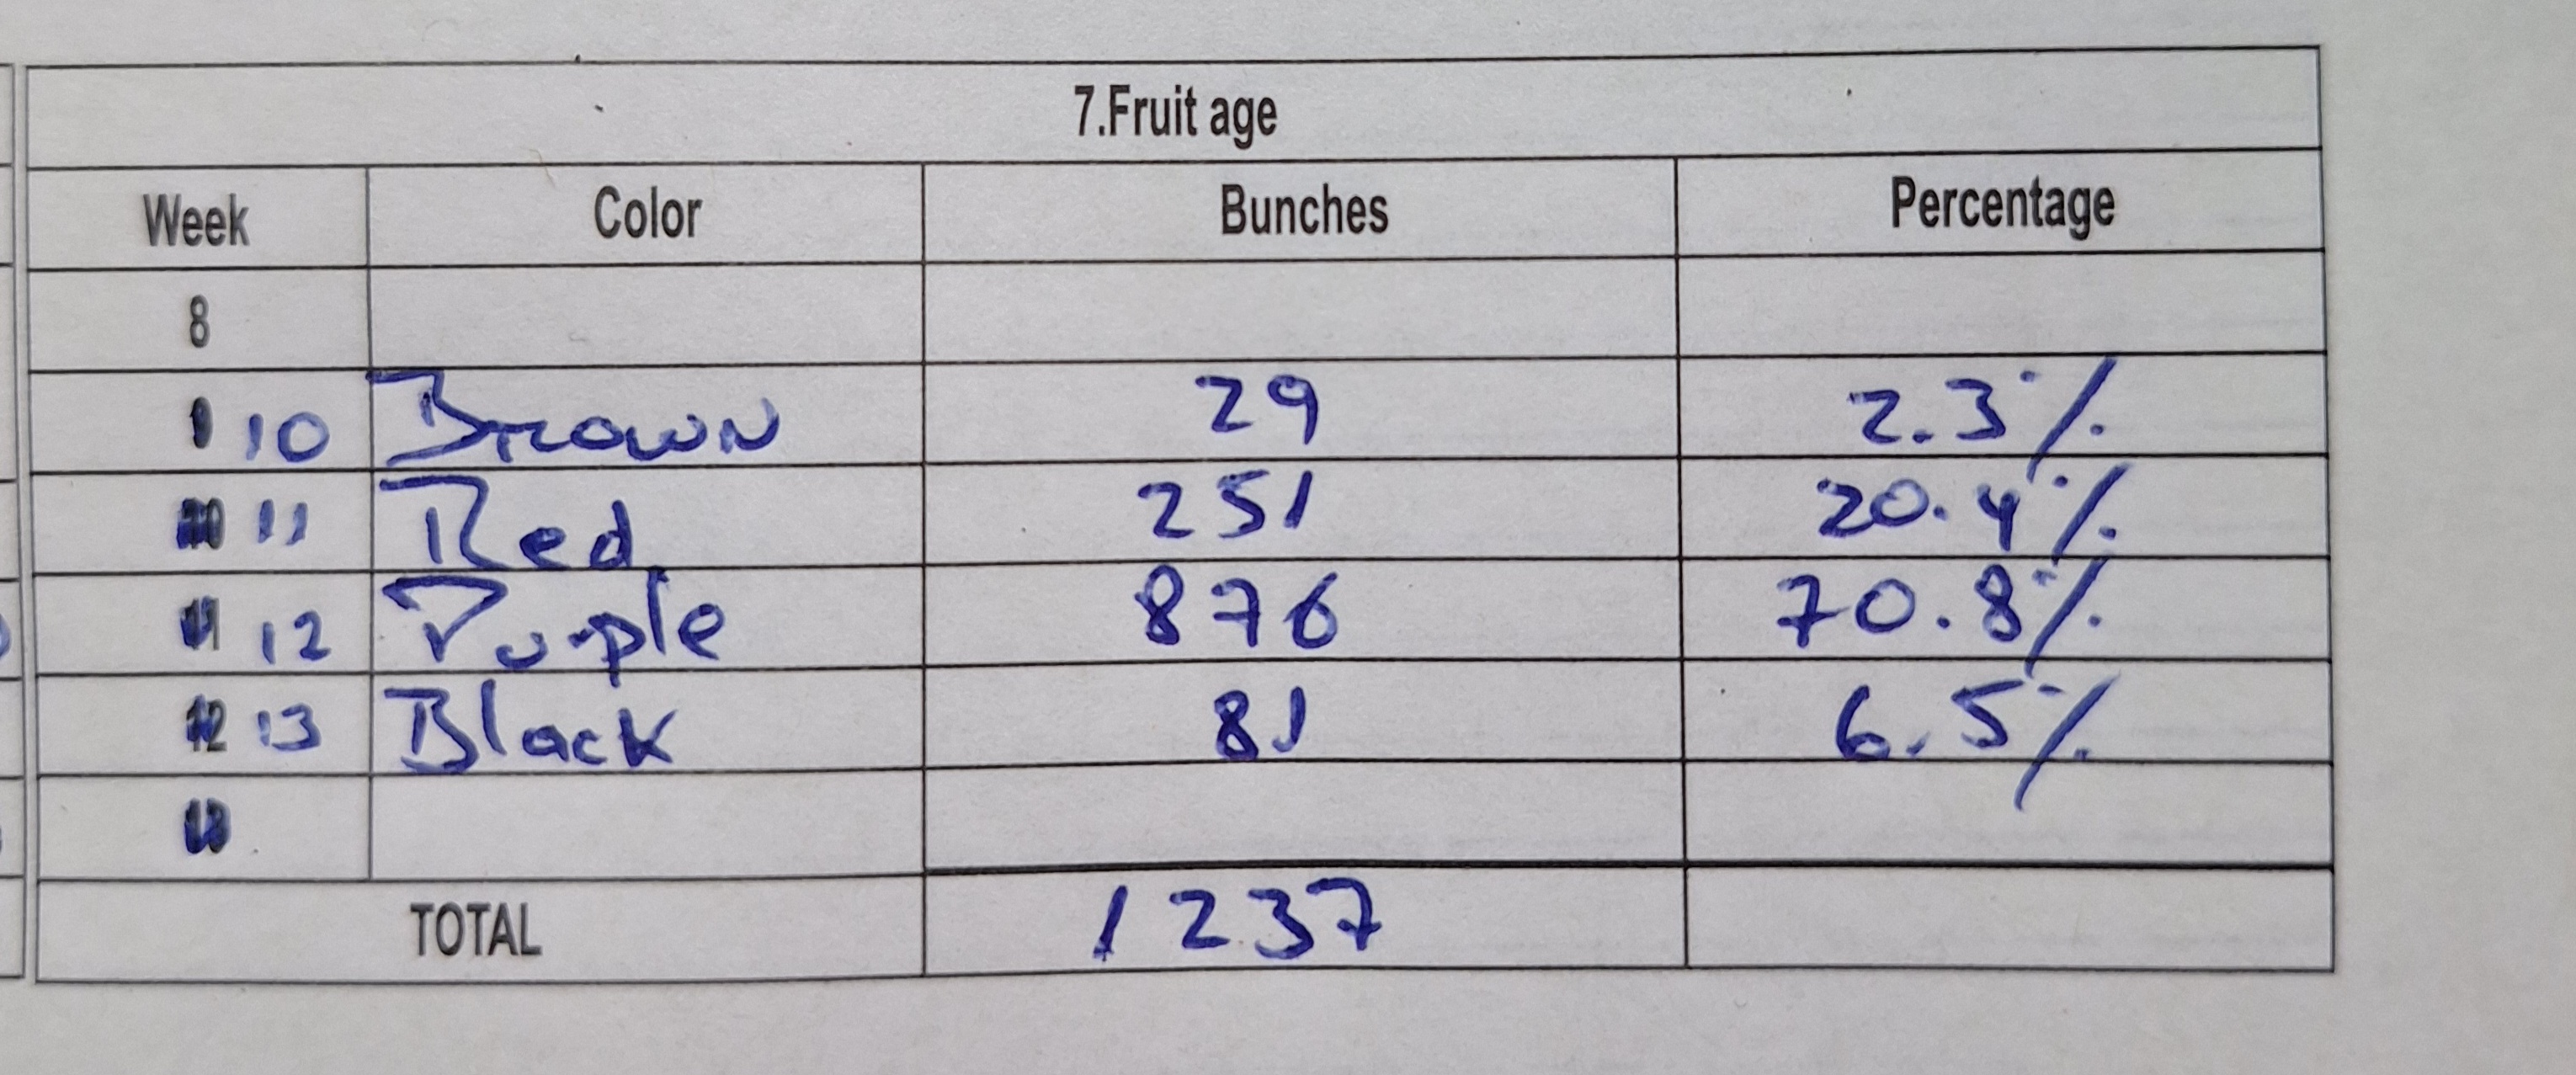 7.Fruit age
Week Color Bunches Percentage
8
10 Brown 29 2.3%
11 Red 251 20.4%
12 Purple 876 70.8%
13 Black 81 6.5%
TOTAL 1237